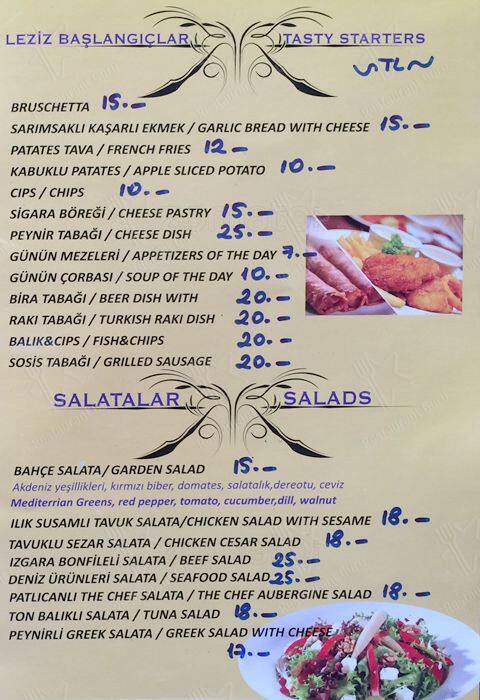 LEZİZ BAŞLANGIÇLAR TASTY STARTERS
~TL~
BRUSCHETTA 15.-
SARIMSAKLI KAŞARLI EKMEK / GARLIC BREAD WITH CHEESE 15.-
PATATES TAVA / FRENCH FRIES 12-
KABUKLU PATATES / APPLE SLICED POTATO 10.-
CIPS / CHIPS 10.-
SİGARA BÖREĞİ / CHEESE PASTRY 15.-
PEYNİR TABAĞI / CHEESE DISH 25.-
GÜNÜN MEZELERİ / APPETIZERS OF THE DAY 7.-
GÜNÜN ÇORBASI / SOUP OF THE DAY 10.-
BİRA TABAĞI / BEER DISH WITH 20.-
RAKI TABAĞI / TURKISH RAKI DISH 20.-
BALIK&CIPS / FISH&CHIPS 20.-
SOSİS TABAĞI / GRILLED SAUSAGE 20.-
SALATALAR SALADS
BAHÇE SALATA/ GARDEN SALAD 15.-
Akdeniz yeşillikleri, kırmızı biber, domates, salatalık,dereotu, ceviz
Mediterrian Greens, red pepper, tomato, cucumber,dill, walnut
ILIK SUSAMLI TAVUK SALATA/CHICKEN SALAD WITH SESAME 18.-
TAVUKLU SEZAR SALATA / CHICKEN CESAR SALAD 18.-
IZGARA BONFİLELİ SALATA / BEEF SALAD 25.-
DENİZ ÜRÜNLERİ SALATA / SEAFOOD SALAD 25.-
PATLICANLI THE CHEF SALATA / THE CHEF AUBERGINE SALAD 18.-
TON BALIKLI SALATA / TUNA SALAD 18.-
PEYNİRLİ GREEK SALATA / GREEK SALAD WITH CHEESE
17.-